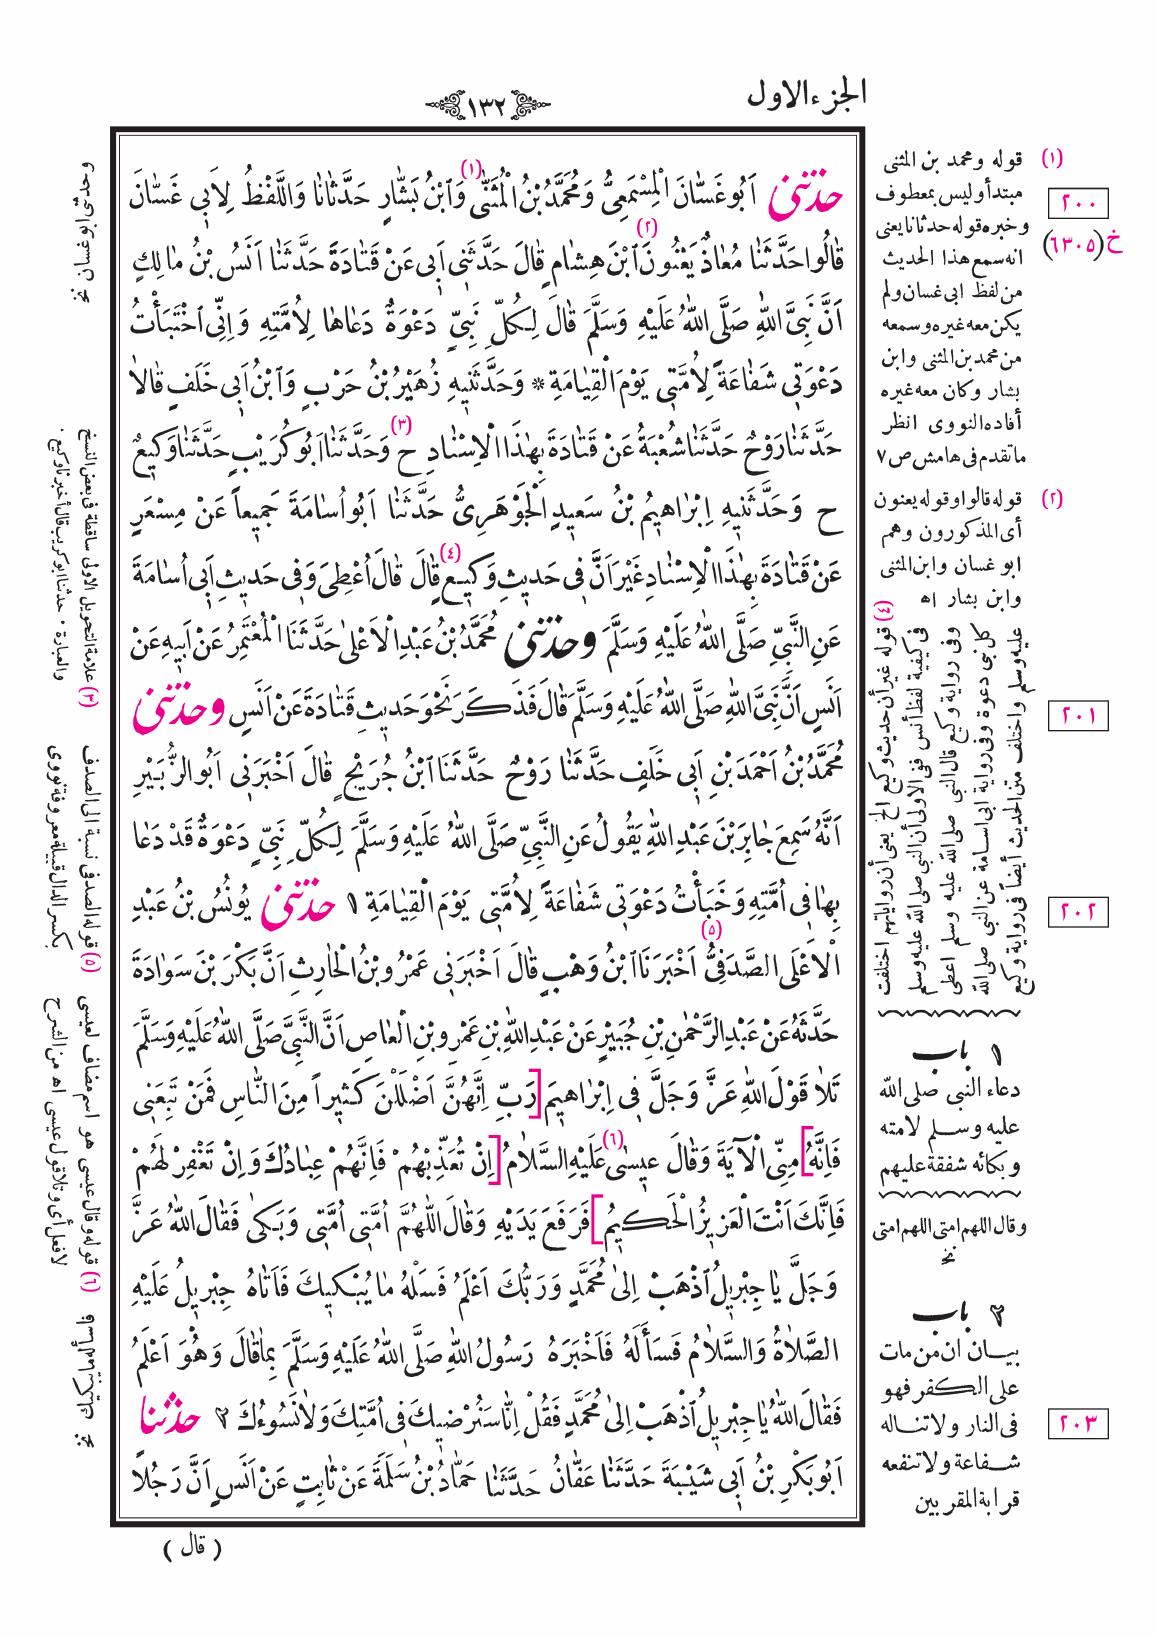 الجزء الاول
١٣٢
حَدَّثَنِي اَبُو غَسَّانَ الْمِسْمَعِيُّ وَمُحَمَّدُ بْنُ الْمُثَنَّى (١) وَابْنُ بَشَّارٍ حَدَّثَانَا وَاللَّفْظُ لِاَبِي غَسَّانَ
قَالُوا حَدَّثَنَا مُعَاذٌ يَعْنُونَ (٢) ابْنَ هِشَامٍ قَالَ حَدَّثَنِي اَبِي عَنْ قَتَادَةَ حَدَّثَنَا اَنَسُ بْنُ مَالِكٍ
اَنَّ نَبِيَّ اللّٰهِ صَلَّى اللّٰهُ عَلَيْهِ وَسَلَّمَ قَالَ لِكُلِّ نَبِيٍّ دَعْوَةٌ دَعَاهَا لِاُمَّتِهِ وَاِنِّي اخْتَبَأْتُ
دَعْوَتِي شَفَاعَةً لِاُمَّتِي يَوْمَ الْقِيَامَةِ * وَحَدَّثَنِيهِ زُهَيْرُ بْنُ حَرْبٍ وَابْنُ اَبِي خَلَفٍ قَالاَ
حَدَّثَنَا رَوْحٌ حَدَّثَنَا شُعْبَةُ عَنْ قَتَادَةَ بِهٰذَا الْاِسْنَادِ ح (٣) وَحَدَّثَنَا اَبُو كُرَيْبٍ حَدَّثَنَا وَكِيعٌ
ح وَحَدَّثَنِيهِ اِبْرَاهِيمُ بْنُ سَعِيدٍ الْجَوْهَرِيُّ حَدَّثَنَا اَبُو اُسَامَةَ جَمِيعاً عَنْ مِسْعَرٍ
عَنْ قَتَادَةَ بِهٰذَا الْاِسْنَادِ غَيْرَ اَنَّ فِي حَدِيثِ وَكِيعٍ (٤) قَالَ قَالَ اُعْطِيَ وَفِي حَدِيثِ اَبِي اُسَامَةَ
عَنِ النَّبِيِّ صَلَّى اللّٰهُ عَلَيْهِ وَسَلَّمَ وحَدَّثَنِي مُحَمَّدُ بْنُ عَبْدِ الْاَعْلٰى حَدَّثَنَا الْمُعْتَمِرُ عَنْ اَبِيهِ عَنْ
اَنَسٍ اَنَّ نَبِيَّ اللّٰهِ صَلَّى اللّٰهُ عَلَيْهِ وَسَلَّمَ قَالَ فَذَكَرَ نَحْوَ حَدِيثِ قَتَادَةَ عَنْ اَنَسٍ وحَدَّثَنِي
مُحَمَّدُ بْنُ اَحْمَدَ بْنِ اَبِي خَلَفٍ حَدَّثَنَا رَوْحٌ حَدَّثَنَا ابْنُ جُرَيْجٍ قَالَ اَخْبَرَنِي اَبُو الزُّبَيْرِ
اَنَّهُ سَمِعَ جَابِرَ بْنَ عَبْدِ اللّٰهِ يَقُولُ عَنِ النَّبِيِّ صَلَّى اللّٰهُ عَلَيْهِ وَسَلَّمَ لِكُلِّ نَبِيٍّ دَعْوَةٌ قَدْ دَعَا
بِهَا فِي اُمَّتِهِ وَخَبَأْتُ دَعْوَتِي شَفَاعَةً لِاُمَّتِي يَوْمَ الْقِيَامَةِ ١ حَدَّثَنِي يُونُسُ بْنُ عَبْدِ
الْاَعْلَى الصَّدَفِيُّ (٥) اَخْبَرَنَا ابْنُ وَهْبٍ قَالَ اَخْبَرَنِي عَمْرُو بْنُ الْحَارِثِ اَنَّ بَكْرَ بْنَ سَوَادَةَ
حَدَّثَهُ عَنْ عَبْدِ الرَّحْمٰنِ بْنِ جُبَيْرٍ عَنْ عَبْدِ اللّٰهِ بْنِ عَمْرِو بْنِ الْعَاصِ اَنَّ النَّبِيَّ صَلَّى اللّٰهُ عَلَيْهِ وَسَلَّمَ
تَلَا قَوْلَ اللّٰهِ عَزَّ وَجَلَّ فِي اِبْرَاهِيمَ [رَبِّ اِنَّهُنَّ اَضْلَلْنَ كَثِيراً مِنَ النَّاسِ فَمَنْ تَبِعَنِي
فَاِنَّهُ] مِنِّي الْآيَةَ وَقَالَ عِيسٰى (٦) عَلَيْهِ السَّلَامُ [اِنْ تُعَذِّبْهُمْ فَاِنَّهُمْ عِبَادُكَ وَاِنْ تَغْفِرْ لَهُمْ
فَاِنَّكَ اَنْتَ الْعَزِيزُ الْحَكِيمُ] فَرَفَعَ يَدَيْهِ وَقَالَ اللّٰهُمَّ اُمَّتِي اُمَّتِي وَبَكٰى فَقَالَ اللّٰهُ عَزَّ
وَجَلَّ يَا جِبْرِيلُ اذْهَبْ اِلٰى مُحَمَّدٍ وَرَبُّكَ اَعْلَمُ فَسَلْهُ مَا يُبْكِيكَ فَاَتَاهُ جِبْرِيلُ عَلَيْهِ
الصَّلَاةُ وَالسَّلَامُ فَسَأَلَهُ فَاَخْبَرَهُ رَسُولُ اللّٰهِ صَلَّى اللّٰهُ عَلَيْهِ وَسَلَّمَ بِمَا قَالَ وَهُوَ اَعْلَمُ
فَقَالَ اللّٰهُ يَا جِبْرِيلُ اذْهَبْ اِلٰى مُحَمَّدٍ فَقُلْ اِنَّا سَنُرْضِيكَ فِي اُمَّتِكَ وَلَا نَسُوءُكَ ٢ حَدَّثَنَا
اَبُو بَكْرِ بْنُ اَبِي شَيْبَةَ حَدَّثَنَا عَفَّانُ حَدَّثَنَا حَمَّادُ بْنُ سَلَمَةَ عَنْ ثَابِتٍ عَنْ اَنَسٍ اَنَّ رَجُلاً
( قال )
(١) قوله ومحمد بن المثنى
مبتدأ وليس بمعطوف
وخبره قوله حدثانا يعنى
انه سمع هذا الحديث
من لفظ ابى غسان ولم
يكن معه غيره وسمعه
من محمد بن المثنى وابن
بشار وكان معه غيره
أفاده النووى انظر
ماتقدم فى هامش ص ٧
(٢) قوله قالوا وقوله يعنون
أى المذكورون وهم
ابو غسان وابن المثنى
وابن بشار اه
(٤) قوله غير أن حديث وكيع الخ يعنى أن رواياتهم اختلفت
فى كيفية لفظ أنس ففى الاولى أن النبى صلى الله عليه وسلم
وفى رواية وكيع قال قال النبى صلى الله عليه وسلم اعطى
كل نبى دعوة وفى رواية ابى اسامة عن النبى صلى الله
عليه وسلم واختلف متن الحديث أيضاً فى رواية وكيع
١ باب
دعاء النبى صلى الله
عليه وسلم لامته
وبكائه شفقة عليهم
وقال اللهم امتى اللهم امتى
نخ
٢ باب
بيان ان من مات
على الكفر فهو
فى النار ولا تناله
شفاعة ولا تنفعه
قرابة المقربين
٢٠٠
خ(٦٣٠٥)
٢٠١
٢٠٢
٢٠٣
وحدثنى ابو غسان نخ
(٣) علامة التحويل الاولى ساقطة فى بعض النسخ
والعبارة . حدثنا ابو كريب قال أخبرنا وكيع .
(٥) قوله الصدفى نسبة الى الصدف
بكسر الدال قبيلة معروفة نووى
(٦) قوله وقال عيسى هو اسم مضاف لعيسى
لا فعل أى وتلا قول عيسى اه من الشرح